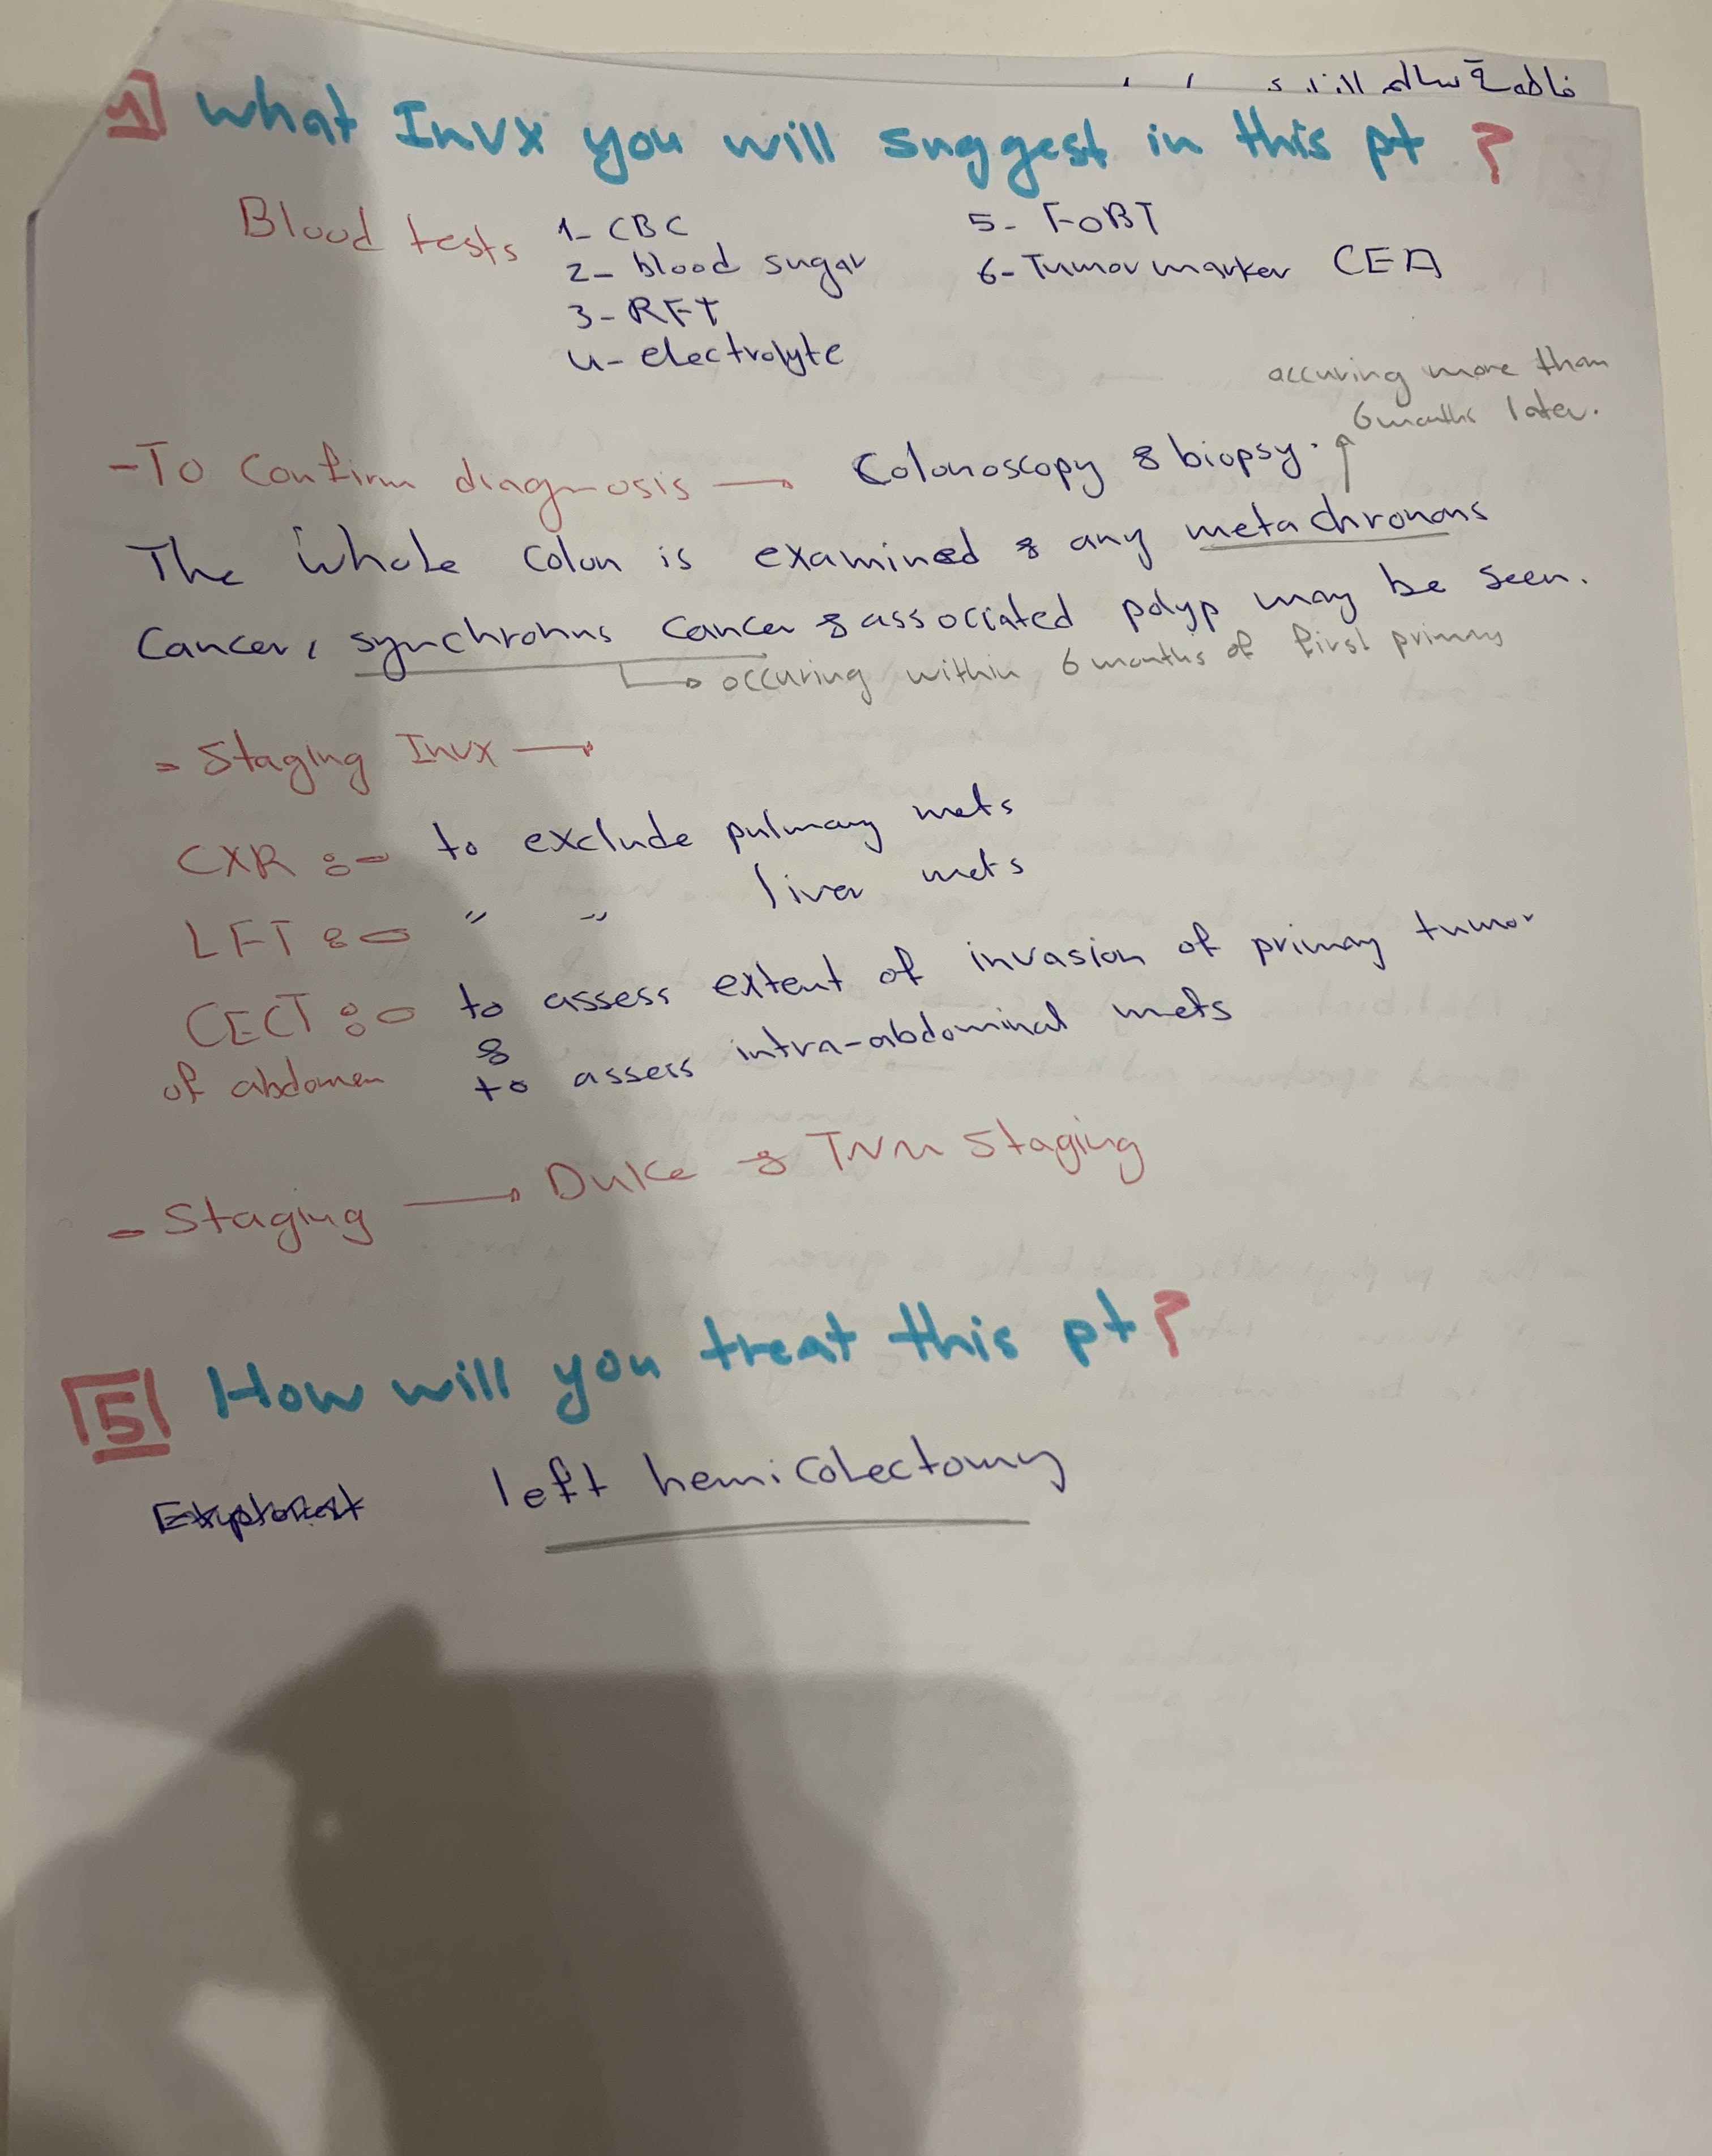 فاطمة سالم
4 What Invx you will suggest in this pt ?
Blood tests 1- CBC 5- FOBT
2- blood sugar 6- Tumor marker CEA
3- RFT
4- electrolyte
accuring more than
6 months later.
- To Confirm diagnosis → Colonoscopy & biopsy.
The whole colon is examined & any metachronous
Cancer, synchronus cancer & associated polyp may be seen.
occuring within 6 months of first primary
- Staging Invx →
CXR :- to exclude pulmary mets
LFT :- " " liver mets
CECT :- to assess extent of invasion of primary tumor
of abdomen & to assess intra-abdominal mets
- Staging → Duke & TNM Staging
5 How will you treat this pt?
left hemicolectomy